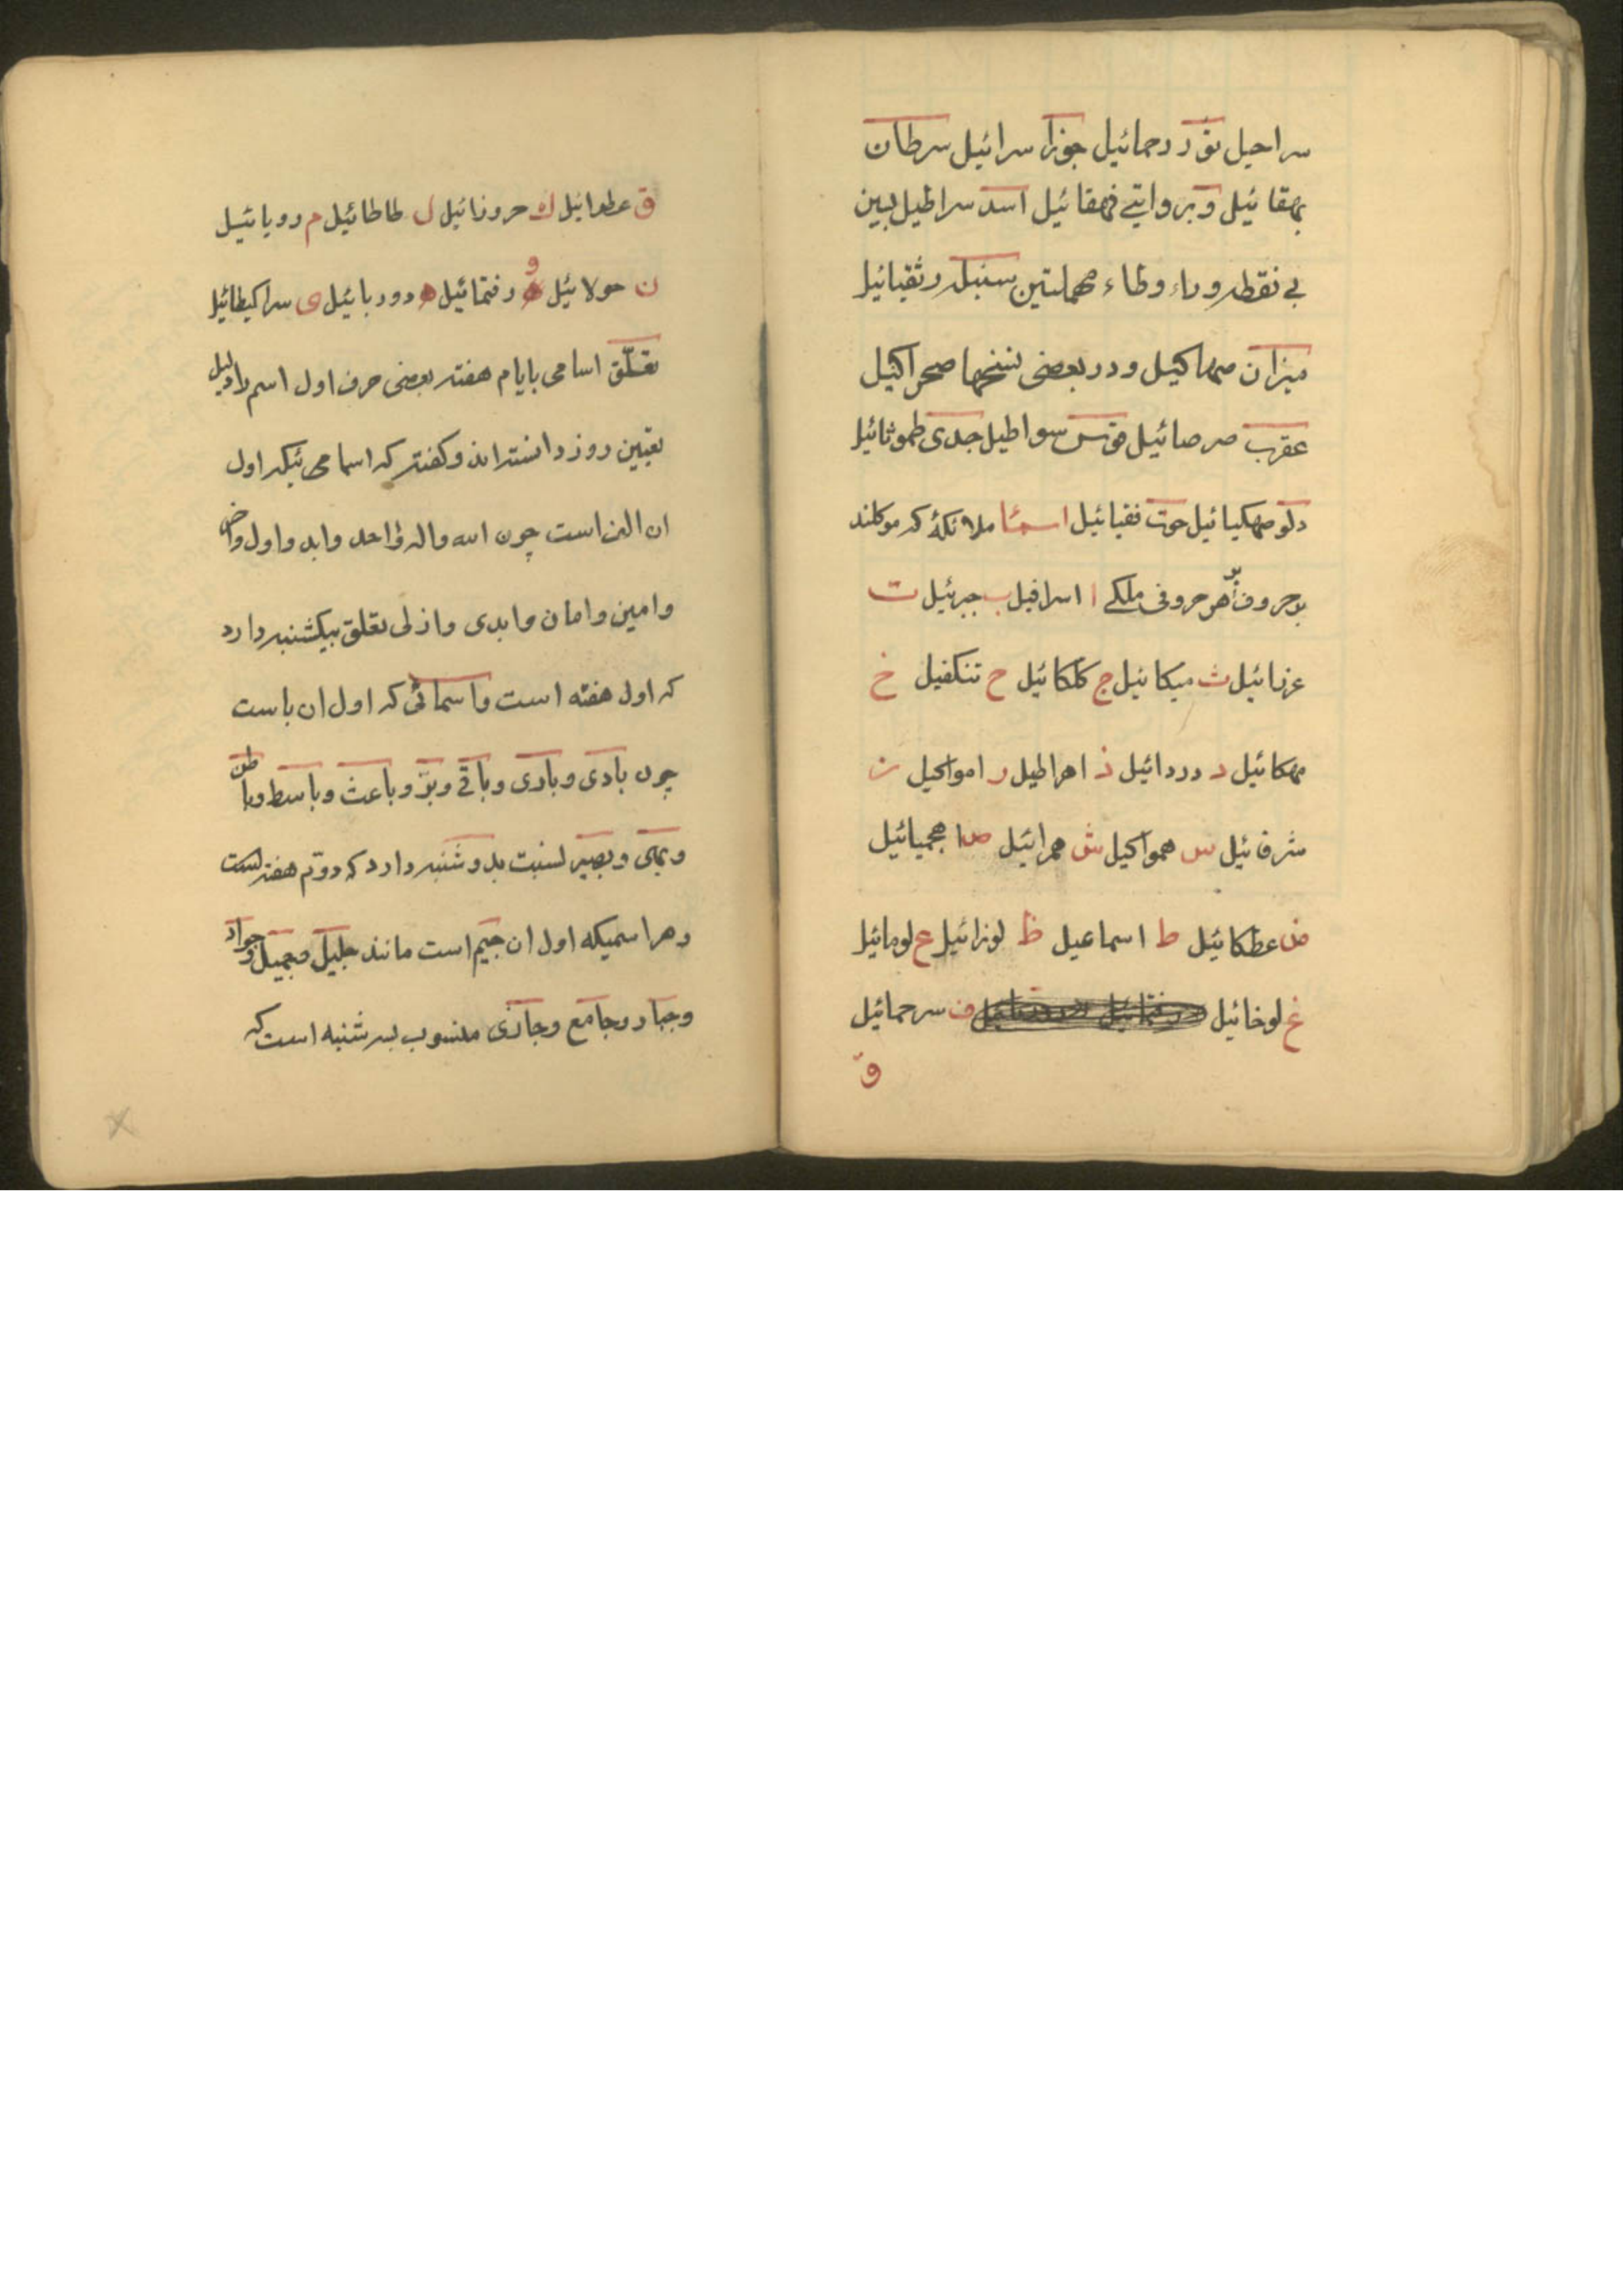 سراحیل ثور دردمائیل جوزا سرائیل سرطان
بهقائیل و بروایتی فهقائیل اسد سراطیل بسین
بی نقطه و راء و طاء مهملتین سنبله رثقیائیل
میزان صهاکیل و در بعضی نسخها صحراکیل
عقرب صرصائیل قوس سواطیل جدی طموثائیل
دلو صهکیائیل حوت فقیائیل اسما ملائکهٔ که موکلند
بر حروف هر حروفی ملکی ا اسرافیل ب جبرئیل ت
عزرائیل ث میکائیل ج کلکائیل ح تنکفیل خ
مهکائیل د دردائیل ذ اهراطیل ر امواکیل ز
شرفائیل س همواکیل ش همرائیل ص اهجمیائیل
ض عطکائیل ط اسماعیل ظ لوزائیل ع لومائیل
غ لوخائیل ف سرحمائیل
ق
ق عطرائیل ك حروزائیل ل طاطائیل م رویائیل
ن حولائیل و رفتمائیل ه دوربائیل ی سراکیطائیل
تعلّق اسامی بایام هفته بعضی حرف اول اسم را دلیل
تعیین روز دانسته اند و کفته که اسامی ئیکه اول
ان الف است چون الله و اله و احد و ابد و اول و اخر
و امین و امان و ابدی و ازلی تعلق بیکشنبه دارد
که اول هفته است و اسمائی که اول ان با ست
چون بادی و باری و باقی و برّ و باعث و باسط و باطن
و بصیر نسبت بدوشنبه دارد که دوّم هفته است
و هر اسمیکه اول ان جیم است مانند جلیل و جمیل و جواد
و جبار و جامع و جازی منسوب بسه شنبه است که